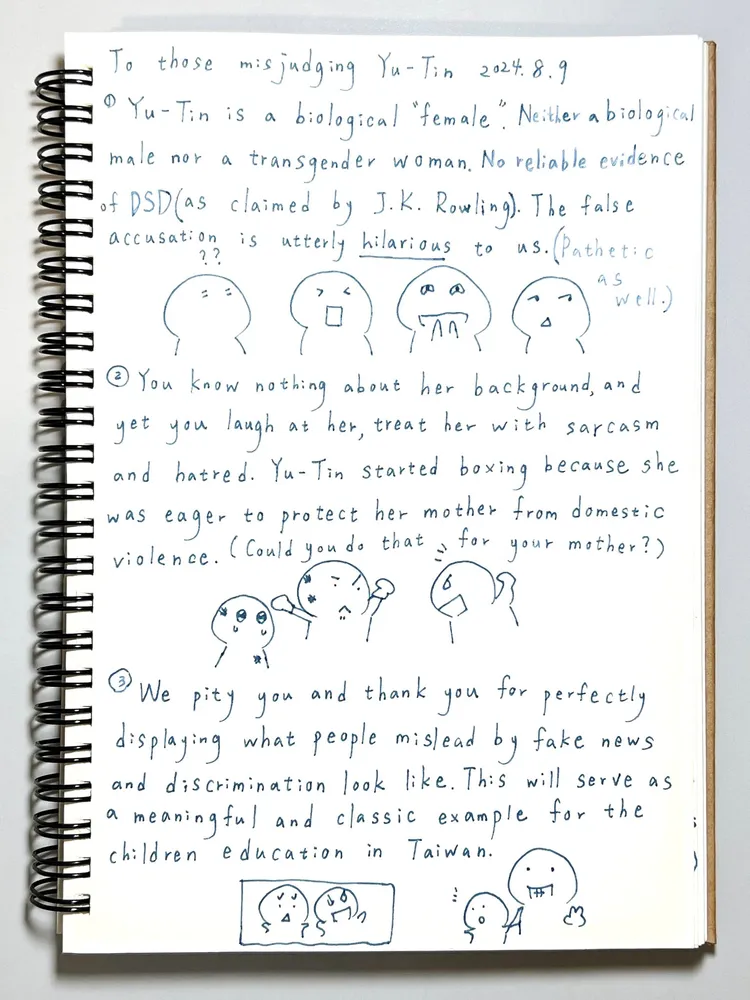 To those misjudging Yu-Tin 2024.8.9
① Yu-Tin is a biological "female". Neither a biological
male nor a transgender woman. No reliable evidence
of DSD (as claimed by J.K. Rowling). The false
accusation is utterly hilarious to us. (Pathetic
as
well.)
??
② You know nothing about her background, and
yet you laugh at her, treat her with sarcasm
and hatred. Yu-Tin started boxing because she
was eager to protect her mother from domestic
violence. (Could you do that for your mother?)
③ We pity you and thank you for perfectly
displaying what people mislead by fake news
and discrimination look like. This will serve as
a meaningful and classic example for the
children education in Taiwan.